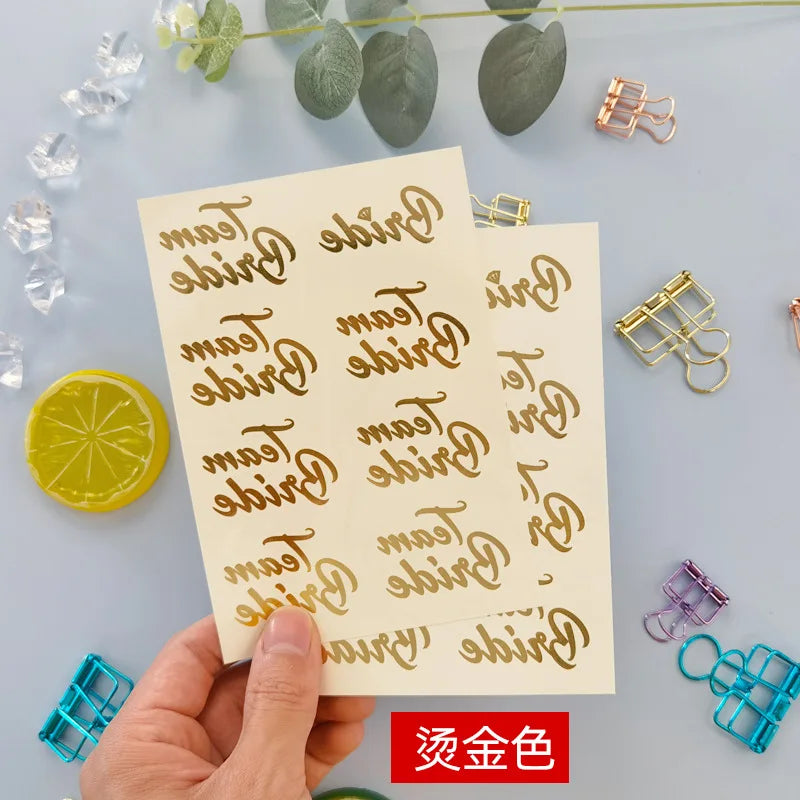 Bride
Team
Bride
Team
Bride
Team
Bride
Team
Bride
Team
Bride
Team
Bride
Team
Bride
Bride
Bride
烫金色